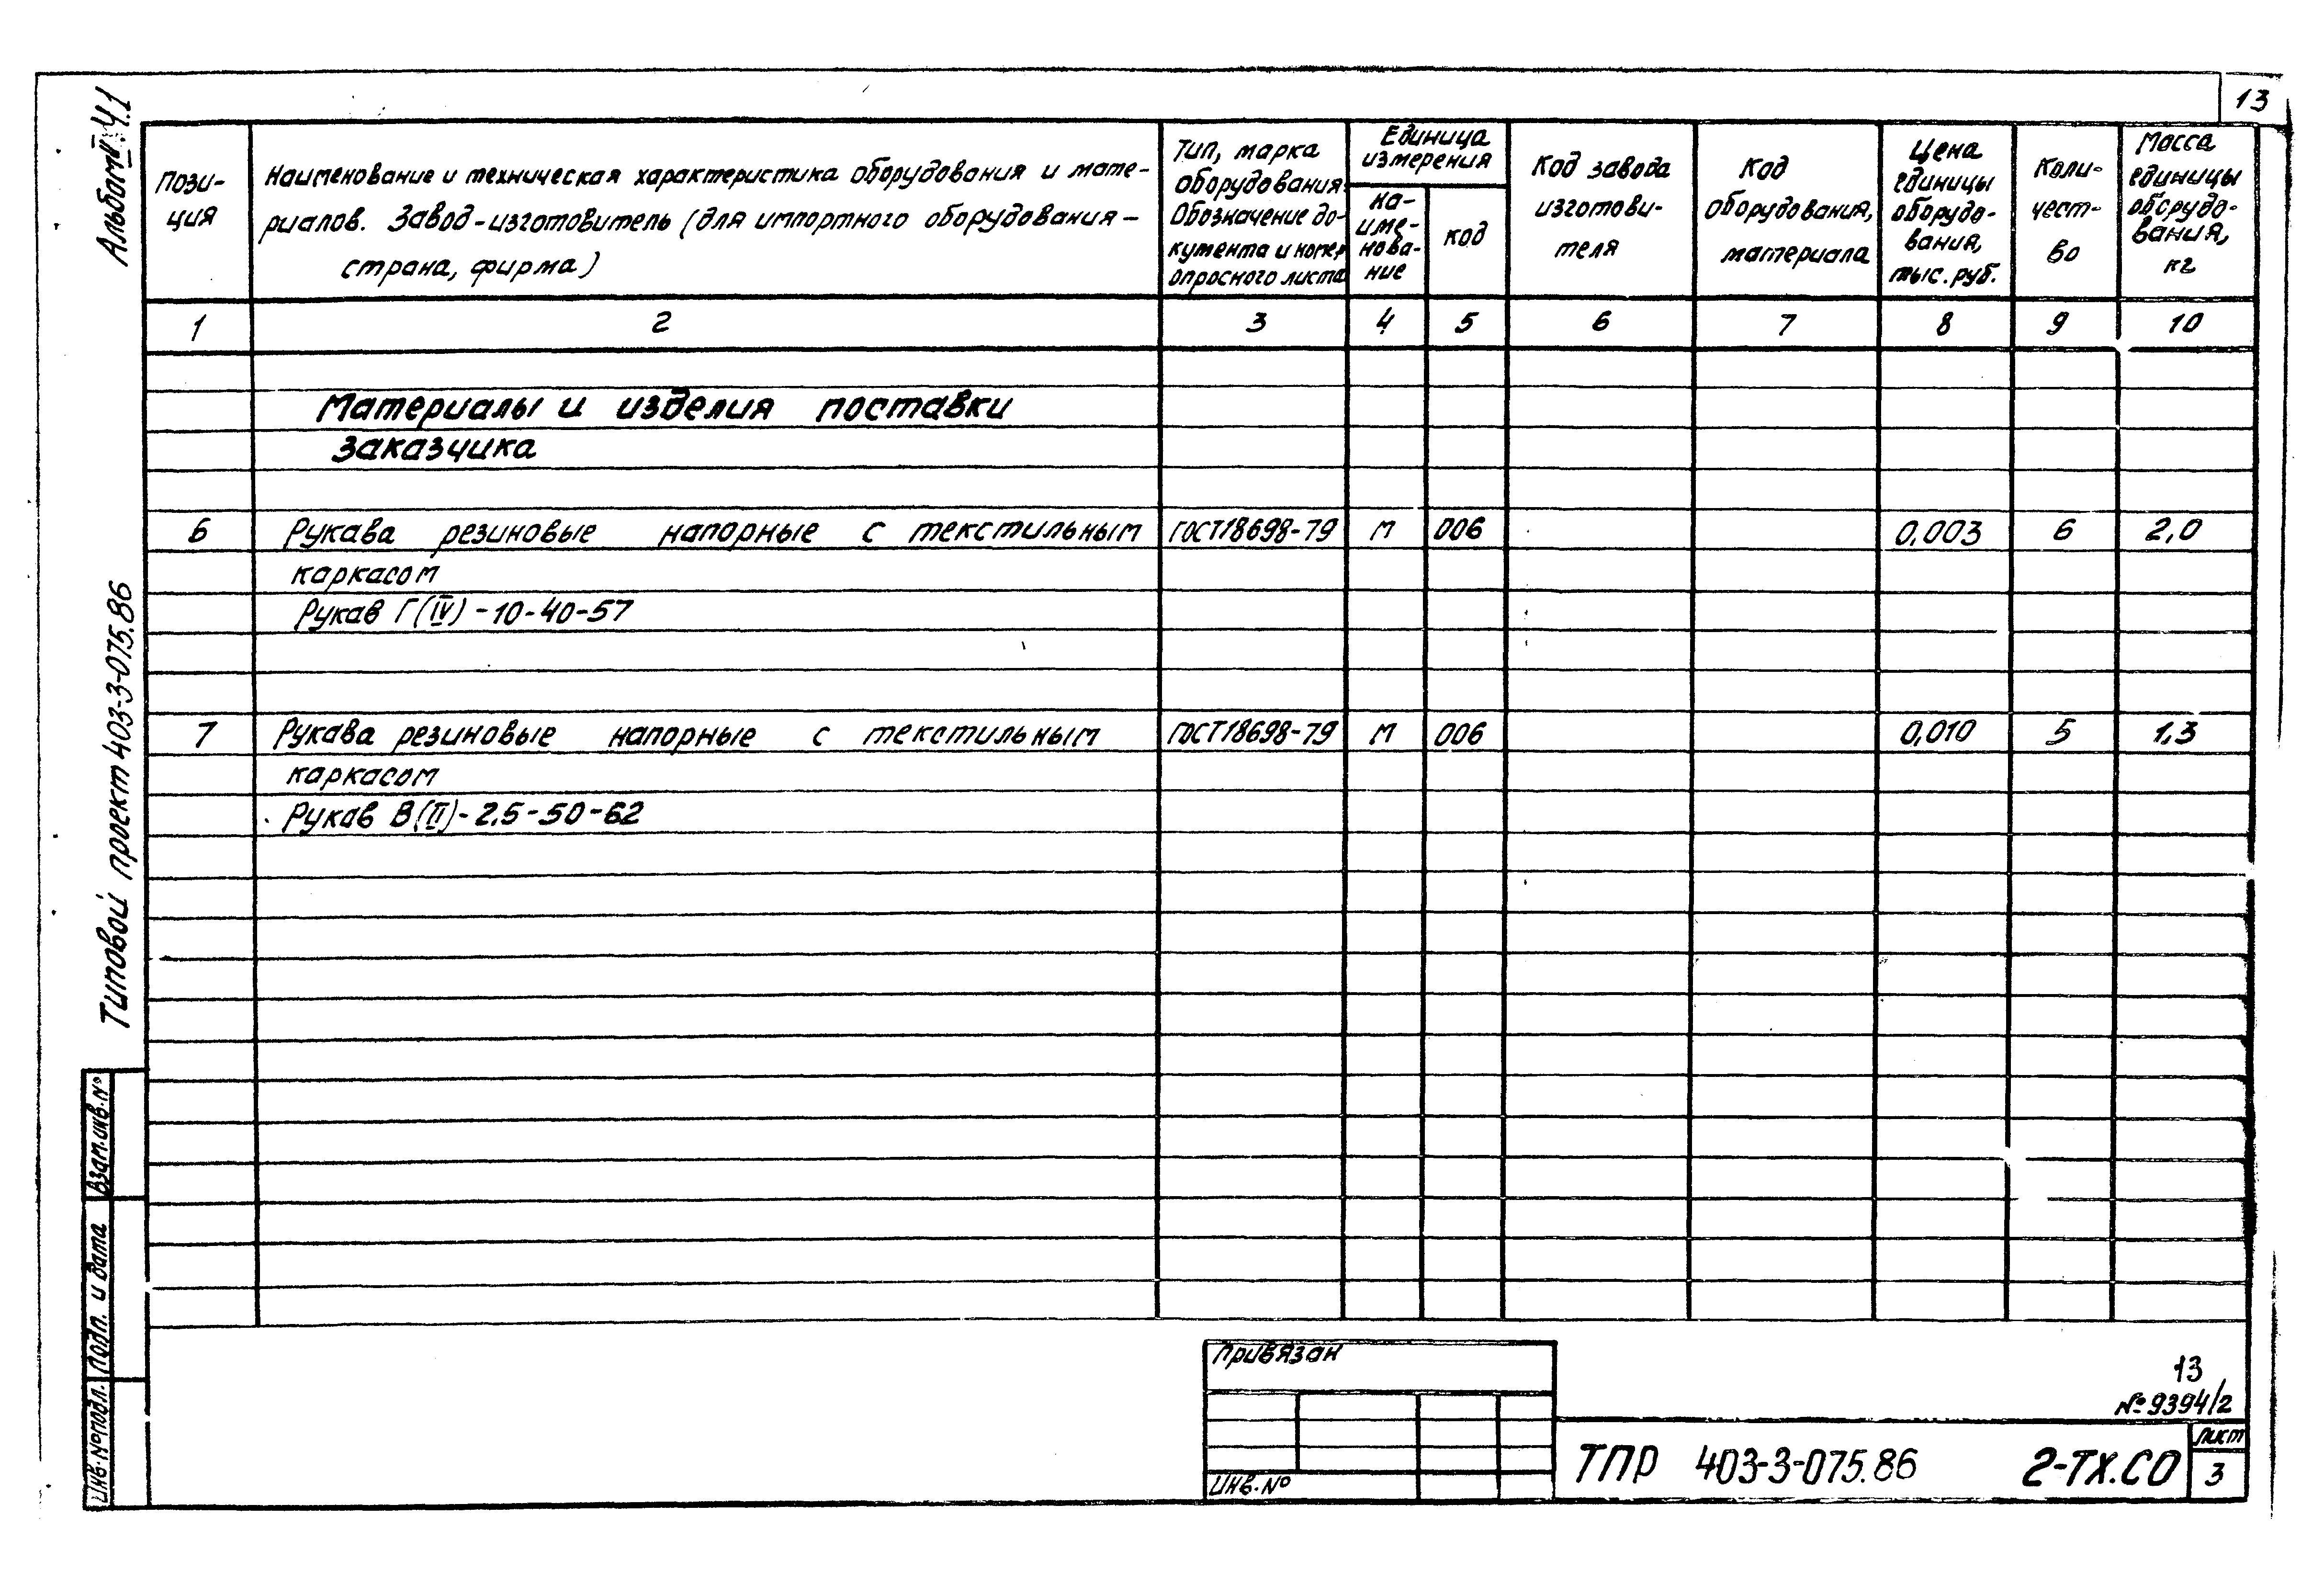 13
Альбом IV.Ч.1
Типовой проект 403-3-075.86
Пози-
ция
Наименование и техническая характеристика оборудования и мате-
риалов. Завод-изготовитель (для импортного оборудования –
страна, фирма)
Тип, марка
оборудования.
Обозначение до-
кумента и номер
опросного листа
Единица
измерения
на-
име-
нова-
ние
код
Код завода
изготови-
теля
Код
оборудования,
материала
Цена
единицы
оборудо-
вания,
тыс. руб.
Коли-
чест-
во
Масса
единицы
оборудо-
вания,
кг
1 2 3 4 5 6 7 8 9 10
Материалы и изделия поставки
заказчика
6 Рукава резиновые напорные с текстильным ГОСТ18698-79 м 006 0,003 6 2,0
каркасом
Рукав Г(IV) -10-40-57
7 Рукава резиновые напорные с текстильным ГОСТ18698-79 м 006 0,010 5 1,3
каркасом
Рукав В(II)-2,5-50-62
Взам.инв.№
Подп. и дата
Инв.№подл.
Привязан
Инв.№
13
№9394/2
ТПР 403-3-075.86 2-ТХ.СО
лист
3